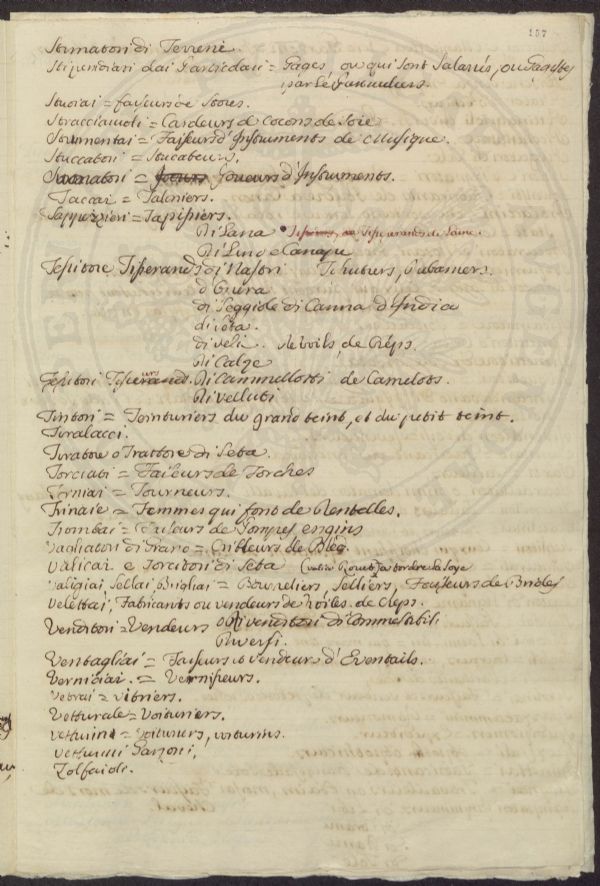 157
Stimatori di Terreni.
Stipendiari dai Particolari = Gagés ou qui sont Salariés, ou
par Lé particuliers.
Stuoiai = faiseurs de Stores.
Stracciaiuoli = Cardeurs de Cocons de Soie
Stromentai = Faiseurs d'Instruments de Musique.
Stuccatori = Stucateurs.
Suonatori = Joueurs d'Instruments.
Taccai = Taloniers.
Tappezzieri = Tapissiers.
Di Lana Tisserandes de Laine.
Di Lino e Canapa
Tessitore Tisserands di Nastri Tissutiers, Rubaniers.
d'Opera
di Seggiole di Canna d'India
di Seta.
di veli. de voils, de Crêps.
Di Calze
Tessitori Di Cammellotti de Camelots.
Di velluti
Tintori = Teinturiers du grand teint, et du petit teint.
Tiralacci.
Tiratore o Trattore di Seta.
Torciai = Faiseurs de Torches
Torniai = Tourneurs.
Trinaie = Femmes qui font de Dentelles.
Trombai = de Pompes engins
Vagliatori di Grano = Cribleurs de Blég.
Valicai e Torcitori di Seta
Valigiai Sellai Brigliai = Bourreliers, Selliers, Faiseurs de Brides
Velettai, Fabricants ou vendeurs de voiles de Crêps.
Venditori = Vendeurs di Commestibili
Diversi.
Ventagliai = Faiseurs o vendeurs d'Eventails.
Verniciai = Vernisseurs.
Vetrai = vitriers.
Vetturale = Voituriers.
Vetturini = voituriers, voiturins.
Vetturini Garzoni,
Zolfaioli.